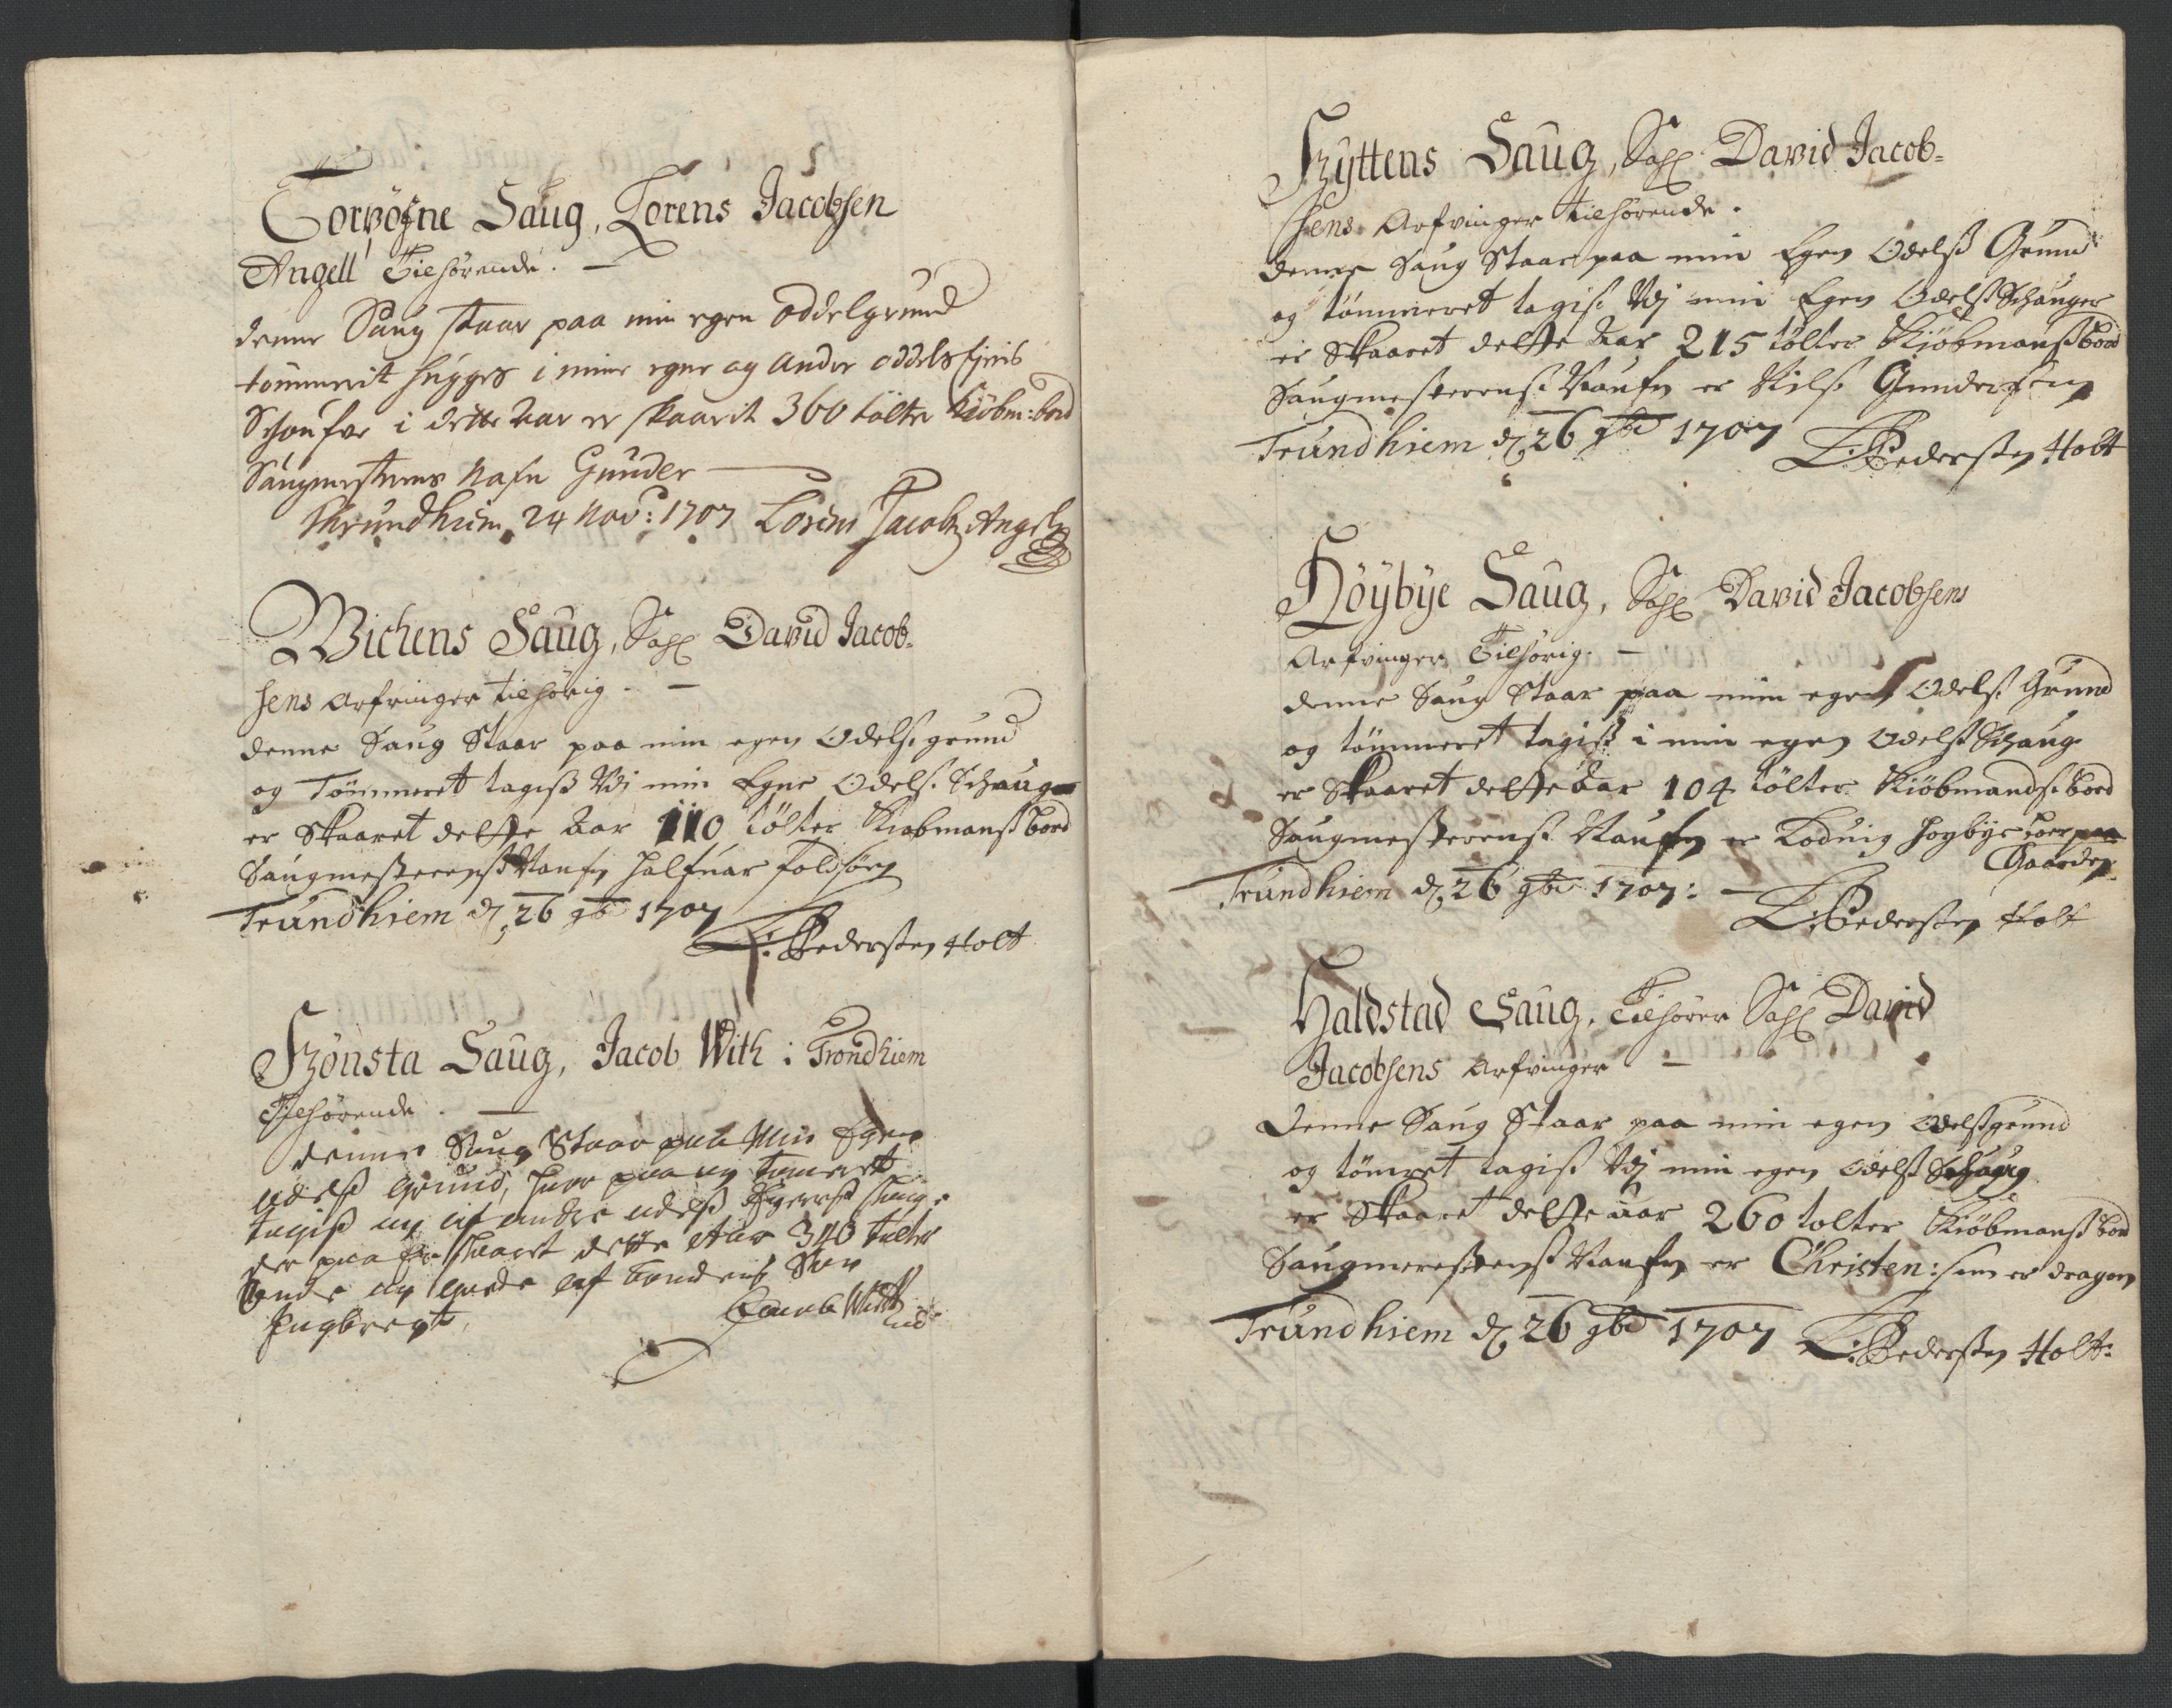 Torvøfne Saug, Lorens Jacobsen
Angell Tilhørende. —
denne Saug staar paa min egen oddelgrund
tømmerit hugges i mine egne og andre oddels Ejeris
Schoufve i dette Aar er skaarit 360 tølter Kiøbm: bord
Saugmesterens Nafn Gunder —
Thrundhiem 24 Nov: 1707 Lorens Jacobs Angell
Wichens Saug, Sahl David Jacob-
sens Arfvinger tilhørig. —
denne Saug Staar paa min egen Odelsgrund
og Tømmeret tagiss Udj min Egne Odels Schauge
er Skaaret dette Aar 110 tølter Kiøbmanss bord
Saugmesterenss Naufn Halfuar
Trundhiem d 26 9br 1707
L: Pedersen Holt
Frønsta Saug, Jacob With i Trondhiem
Tilhørende. —
denne Saug Staar paa Min Egen
odelss Grund, huor paa og tømeret
tagiss og af andre odelss Eyerss skoug.
der paa er skaaret dette Aar 340 tolter
onde og goede af bondens Søn
Ingbregt,
Jacob With
Fryttens Saug, Sahl David Jacob-
sens Arfvinger tilhørende.
denne Saug Staar paa min Egen Odelss Grund
og tømmeret tagis Udj min Egen Odelss Schauger
er Skaaret dette Aar 215 tølter Kiøbmanss bord
Saugmesterens Naufn er Nils Gundersen
Trundhiem d 26 9br 1707
L: Pedersen Holt
Høybye Saug, Sahl David Jacobsens
Arfvinger Tilhørig. —
denne Saug Staar paa min egen Odels Grund
og tømmeret tagiss i min egen Odelss Schaug
er Skaaret dette Aar 104 tølter Kiøbmands bord
Saugmesterens Naufn er Lodvig Høybye boer paa
Gaarden
Trundhiem d 26 9br 1707: —
L: Pedersen Holt
Haldstad Saug, Tilhører Sahl David
Jacobsens Arfvinger —
Denne Saug Staar paa min egen Odelssgrund
og tømret tagiss Udj min egen Odelss Schaug
er Skaaret dette aar 260 tolter Kiøbmanss bord
Saugmesterens Naufn er Christen: som er dragon
Trundhiem d 26 9br 1707
L: Pedersen Holt: